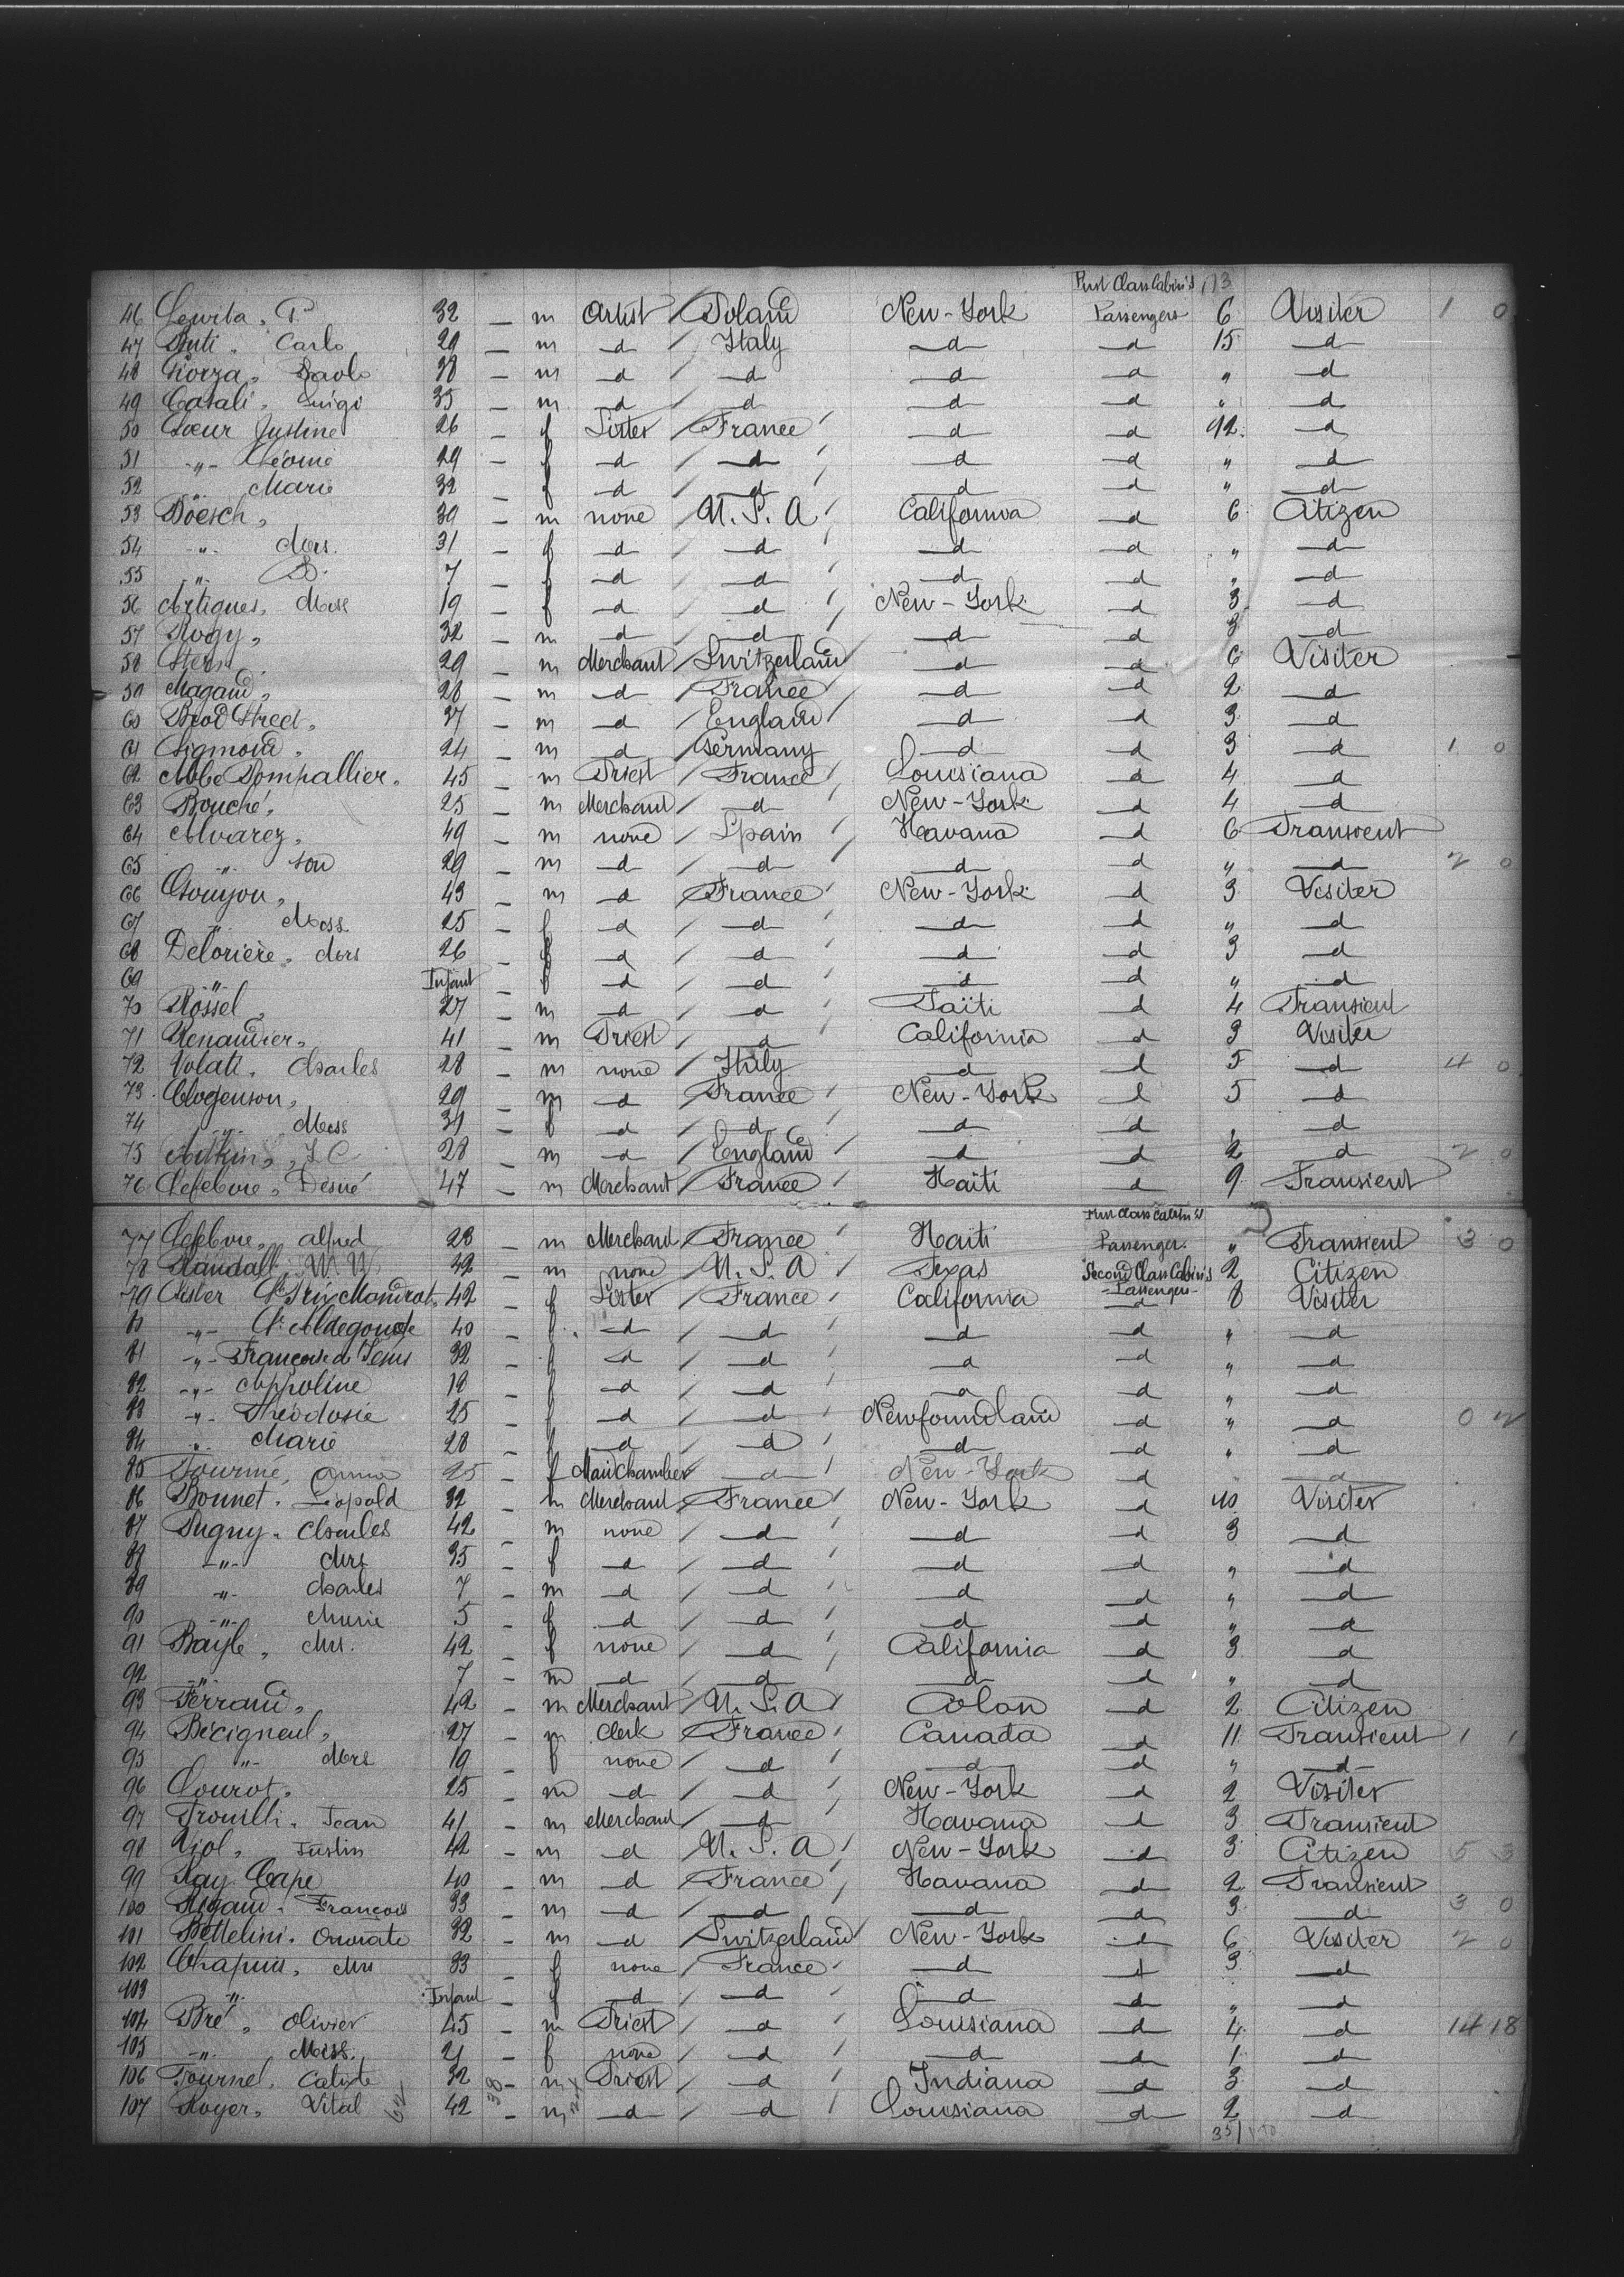 First Class Cabin's 173
46 Lewita, P. 32 – m Artist Poland New-York Passengers 6 Visiter 1 0
47 Buti, Carlo 29 – m –d Italy –d –d 15 –d
48 Giorza, Paolo 38 – m –d –d –d –d " –d
49 Casali, Luigi 35 – m –d –d –d –d " –d
50 Sœur Justine 26 – f Sister France –d –d 12 –d
51 -"- Léonie 29 – f –d –d –d –d " –d
52 -"- Marie 32 – f –d –d –d –d " –d
53 Doesch, 39 – m none U.S.A California –d 6 Citizen
54 -"- Mrs. 31 – f –d –d –d –d " –d
55 -"- 7 – f –d –d –d –d " –d
56 Artigues, Miss 19 – f –d –d New-York –d 3 –d
57 Rogy, 32 – m –d –d –d –d 3 –d
58 Stern, 29 – m Merchant Switzerland –d –d 6 Visiter
59 Magand, 28 – m –d France –d –d 2 –d
60 Brod Street, 37 – m –d England –d –d 3 –d
61 Sigmond, 24 – m –d Germany –d –d 3 –d 1 0
62 Abbé Pompallier, 45 – m Priest France Louisiana –d 4 –d
63 Bouché, 25 – m Merchant –d New-York –d 4 –d
64 Alvarez, 49 – m none Spain Havana –d 6 Transient
65 -"- son 29 – m –d –d –d –d " –d 2 0
66 Goujon, 43 – m –d France New-York –d 3 Visiter
67 -"- Miss 25 – f –d –d –d –d " –d
68 Delorière, Mrs 26 – f –d –d –d –d 3 –d
69 -"- Infant – f –d –d –d –d " –d
70 Rossel, 27 – m –d –d Taïti –d 4 Transient
71 Renaudier, 41 – m Priest –d California –d 3 Visiter
72 Volati, Charles 28 – m none Italy –d –d 5 –d 4 0
73 Clogenson, 29 – m –d France New-York –d 5 –d
74 -"- Miss 31 – f –d –d –d –d " –d
75 Aitkins, 28 – m –d England –d –d 2 –d 2 0
76 Lefebvre, Désiré 47 – m Merchant France Haïti –d 9 Transient
First Class Cabin's
77 Lefebvre, Alfred 28 – m Merchant France Haïti Passenger " Transient 3 0
78 Randall, W W 42 – m none U.S.A Texas Second Class Cabin's 2 Citizen
79 Sister St Prix Mandrot, 42 – f Sister France California –Passengers– 8 Visiter
80 -"- St Aldegonde 40 – f –d –d –d –d " –d
81 -"- Françoise de Jésus 32 – f –d –d –d –d " –d
82 -"- Appoline 18 – f –d –d –d –d " –d
83 -"- Théodosie 25 – f –d –d Newfoundland –d " –d 0 2
84 -"- Marie 28 – f –d –d –d –d " –d
85 Tourmé, Anna 25 – f Maid Chamber –d New-York –d " –d
86 Bonnet, Léopold 32 – m Merchant France New-York –d 10 Visiter
87 Pugny, Charles 42 – m none –d –d –d 3 –d
88 -"- Mrs 35 – f –d –d –d –d " –d
89 -"- Charles 7 – m –d –d –d –d " –d
90 -"- Marie 5 – f –d –d –d –d " –d
91 Bayle, Mrs. 42 – f none –d California –d 3 –d
92 -"- 7 – m –d –d –d –d " –d
93 Ferrand, 42 – m Merchant U.S.A Colon –d 2 Citizen
94 Bécigneul, 27 – m Clerk France Canada –d 11 Transient 1 1
95 -"- Mrs 19 – f none –d –d –d " –d
96 Courot, 25 – m –d –d New-York –d 2 Visiter
97 Trouilh, Jean 41 – m Merchant –d Havana –d 3 Transient
98 Viol, Justin 42 – m –d U.S.A New-York –d 3 Citizen 5 3
99 Lay Cape 40 – m –d France Havana –d 2 Transient
100 Rigaud, François 33 – m –d –d –d –d 3 –d 3 0
101 Bettelini, Onorato 32 – m –d Switzerland New-York –d 6 Visiter 2 0
102 Chapuis, Mrs 33 – f none France –d –d 3 –d
103 -"- Infant – f –d –d –d –d " –d
104 Bré, Olivier 45 – m Priest –d Louisiana –d 4 –d 14 18
105 -"- Miss. 21 – f none –d –d –d 1 –d
106 Tournel, Calixte 32 – m Priest –d Indiana –d 3 –d
107 Royer, Vital 42 – m –d –d Louisiana –d 2 –d